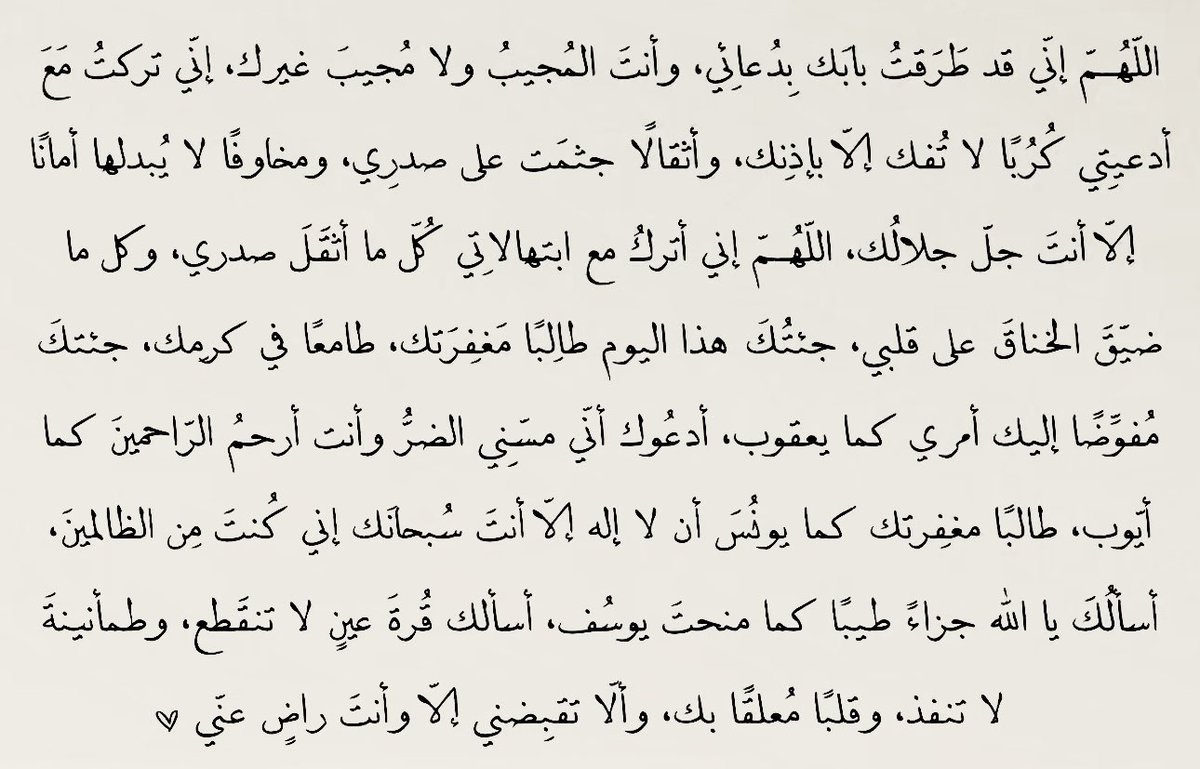 اللّهُـمّ إنّي قد طَرَقتُ بابَك بِدُعائِي، وأنتَ المُجيبُ ولا مُجيبَ غيرك، إنّي تركتُ مَعَ
أدعيتِي كُرُبًا لا تُفك إلّا بإذنِك، وأثقالًا جثمَت على صدرِي، ومخاوفًا لا يُبدلها أمانًا
إلّا أنتَ جلّ جلالُك، اللّهُـمّ إني أتركُ مع ابتهالاتِي كُلّ ما أثقَلَ صدري، وكل ما
ضيّقَ الخناقَ على قلبي، جئتُكَ هذا اليوم طالِبًا مَغفِرَتك، طامعًا في كرمِك، جئتكَ
مُفوِّضًا إليك أمري كما يعقوب، أدعُوك أنّي مسَنِي الضرُّ وأنت أرحمُ الرّاحمينَ كما
أيّوب، طالبًا مغفِرتك كما يونُسَ أن لا إله إلّا أنتَ سُبحانَك إني كُنتَ مِن الظالمينَ،
أسألُكَ يا الله جزاءً طيبًا كما منحتَ يوسُف، أسألك قُرةَ عينٍ لا تنقَطع، وطمأنينةَ
لا تنفذ، وقلبًا مُعلقًا بك، وألّا تقبِضني إلّا وأنتَ راضٍ عنّي ♡